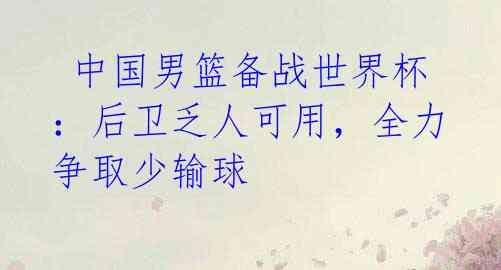 中国男篮备战世界杯
：后卫乏人可用，全力
争取少输球